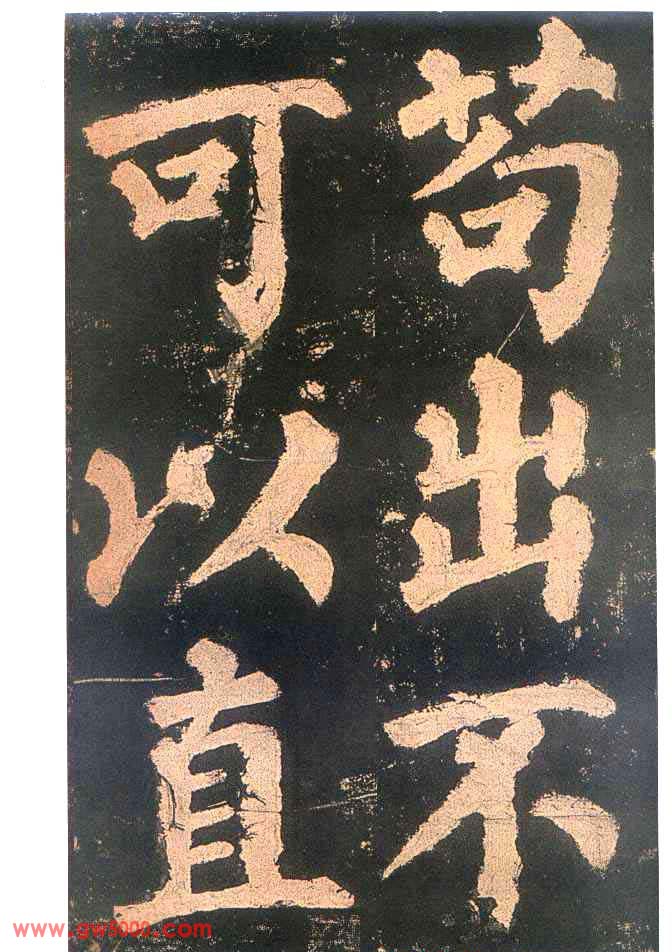 苟出不
可以直
www.gw8000.com